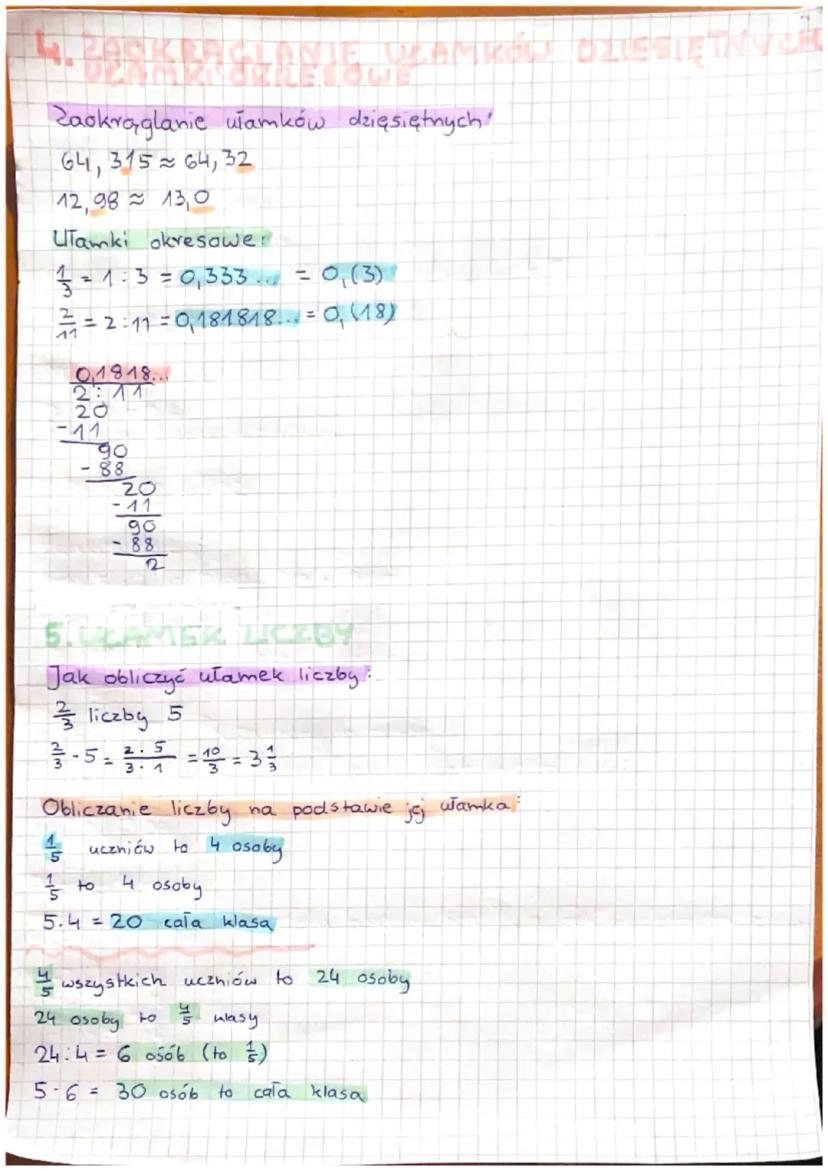 4. ZAOKRĄGLANIE UŁAMKÓW DZIESIĘTNYCH
UŁAMKI OKRESOWE
Zaokrąglanie ułamków dzięsiętnych:
64,315 ≈ 64,32
12,98 ≈ 13,0
Ułamki okresowe:
1/3 = 1 : 3 = 0,333... = 0,(3)
2/11 = 2 : 11 = 0,181818... = 0,(18)
0,1818...
2 : 11
20
-11
90
- 88
20
- 11
90
- 88
2
5. UŁAMEK LICZBY
Jak obliczyć ułamek liczby:
2/3 liczby 5
2/3 · 5 = 2 · 5/3 · 1 = 10/3 = 3 1/3
Obliczanie liczby na podstawie jej ułamka:
1/5 uczniów to 4 osoby
1/5 to 4 osoby
5 · 4 = 20 cała klasa
4/5 wszystkich uczniów to 24 osoby
24 osoby to 4/5 klasy
24 : 4 = 6 osób (to 1/5)
5 · 6 = 30 osób to cała klasa